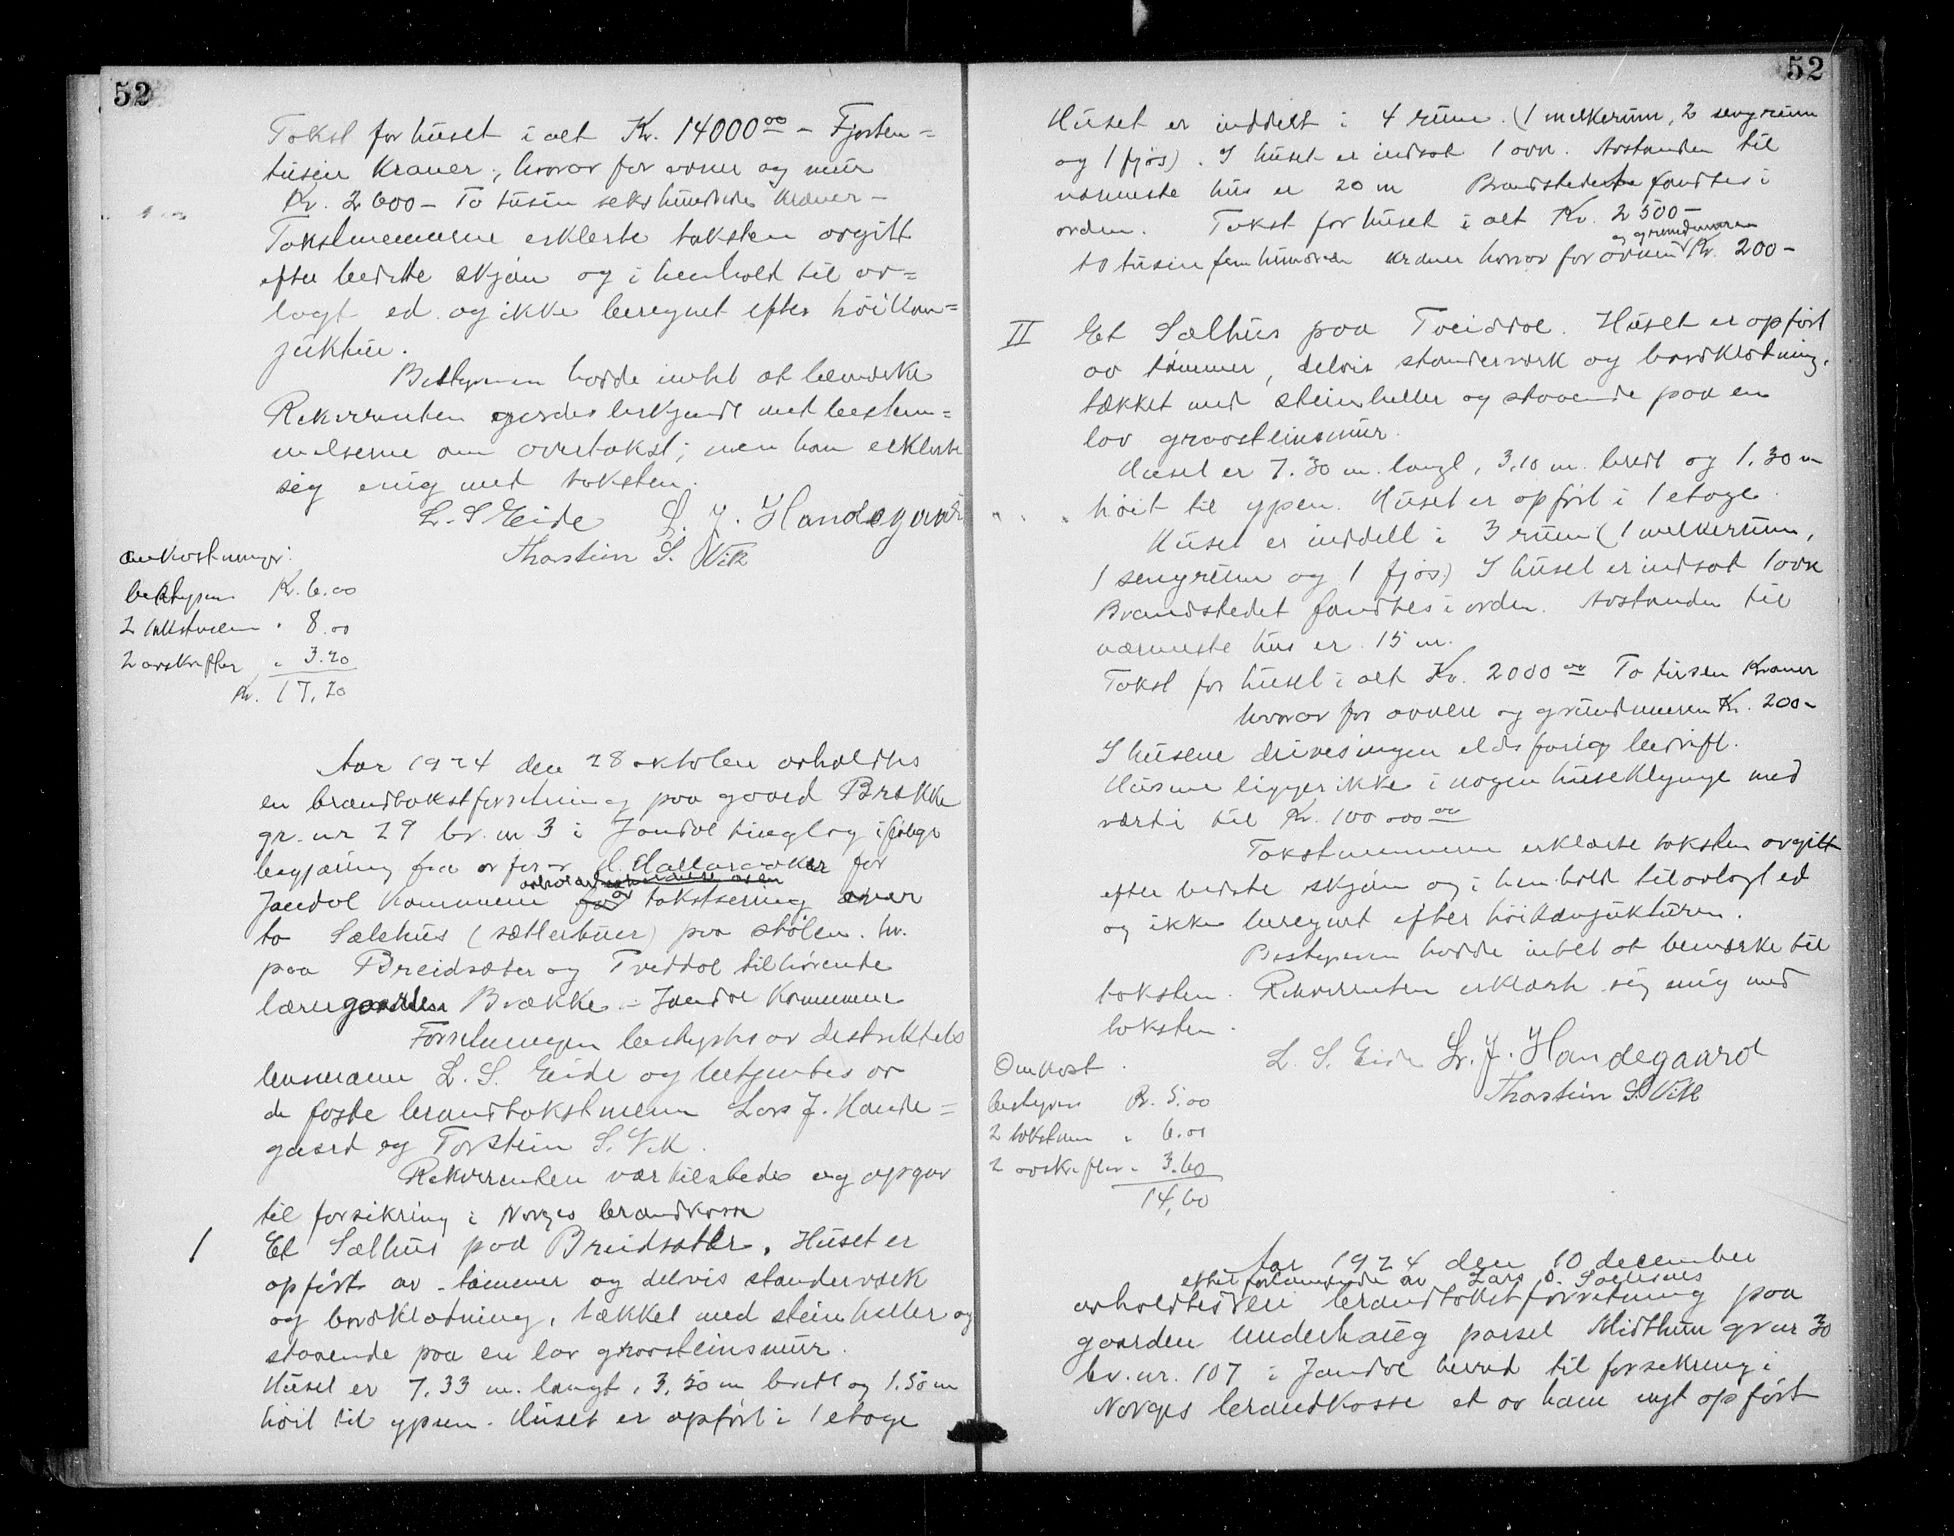 52
Takst for huset i alt Kr. 14000 00 – Fjorten=
tusen kroner, hvorav for ovner og mur
Kr. 2600 – To tusin sekshundrede kroner –
Takstmennerne erklerte taksten avgitt
efter bedste skjøn og i henhold til av=
lagt ed og ikke beregnet efter höikon=
juktur.
Bestyreren hadde intet at bemerke
Rekvirenten gjordes bekjendt med bestem=
melserne om overtakst; men han erklerte
sig enig med taksten.
L. S Eide L. J. Handegaard
Thorstein S. Vik
Omkostninger:
bestyren Kr. 6.00
2 takstmen " 8.00
2 avskrifter " 3.20
Kr. 17,20
Aar 1924 den 28 oktober avholdtes
en brandtakstforretning paa gaard Brække
gr. nr 29 br. nr 3 i Jondal tinglag ifölge
begjæring fra ordförer Hallaraaker for
Jondal kommune for takstsering over
to Sælehus (sætterbuer) paa stölen. hv.
paa Breidsæter og Tveddal tilhörende
læregaarden Brække – Jondal kommune
Forretningen bestyrtes av distriktets
lensmann L. S. Eide og betjentes av
de faste brandtakstmenn Lars J. Hande=
gaard og Torstein S. Vik.
Rekvirenten var tilstede og opgav
til forsikring i Norges brandkasse
1 Et Sælhus paa Breidsæter. Huset er
opfört av tömmer og delvis standerværk
og bordklædning, tækket med steinheller og
staaende paa en lav graasteinsmur.
Huset er 7.33 m. langt, 3,50 m bredt og 1.50 m
höit til ypsen. Huset er opfört i 1 etage
52
Huset er inddelt i 4 rum. (1 melkerum, 2 sengrum
og 1 fjøs). I huset er indsat 1 ovn. Avstanden til
nærmeste hus er 20 m Brandstedet fandtes i
orden. Takst for huset i alt Kr. 2500 –
og grundmuren
to tusin fem hundrede kroner hvorav for ovnen Kr. 200 –
II Et Sælhus paa Tveiddal. Huset er opfört
av tömmer, delvis standerværk og bordklædning,
tækket med steinheller og staaende paa en
lav graasteinsmur.
Huset er 7.30 m. langt, 3,10 m. bredt og 1,30 m
höit til ypsen. Huset er opfört i 1 etage.
Huset er inddelt i 3 rum (1 melkerum,
1 sengrum og 1 fjøs) I huset er indsat 1 ovn
Brandstedet fandtes i orden. Avstanden til
nærmeste hus er 15 m.
Takst for huset i alt Kr. 2000 00 To tusen Kroner
hvorav for ovnen og grundmuren Kr. 200 –
I husene drives ingen eldsfarig bedrift.
Husene ligger ikke i nogen huseklynge med
værdi til Kr. 100 000 00
Takstmennene erklærte taksten avgitt
efter bedste skjøn og i henhold til avlagt ed
og ikke beregnet efter höikonjukturen.
Bestyreren hadde intet at bemærke til
taksten. Rekvirenten erklærte sig enig med
taksten.
L. S. Eide L. J. Handegaard
Thorstein S. Vik
Omkost.
bestyren Kr. 5.00
2 takstmen " 6.00
2 avskrifter " 3.60
14,60
Aar 1924 den 10 december
efter forlangende av Lars O. Solesnes
avholdtes en brandtakstforretning paa
gaarden Underhaug parsel Midthun gr nr 30
br. nr. 107 i Jondal herred til forsekring i
Norges brandkasse et av ham nyt opfört